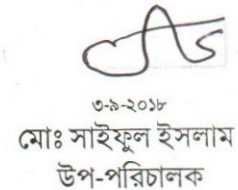 ৩-৯-২০১৮
মোঃ সাইফুল ইসলাম
উপ-পরিচালক